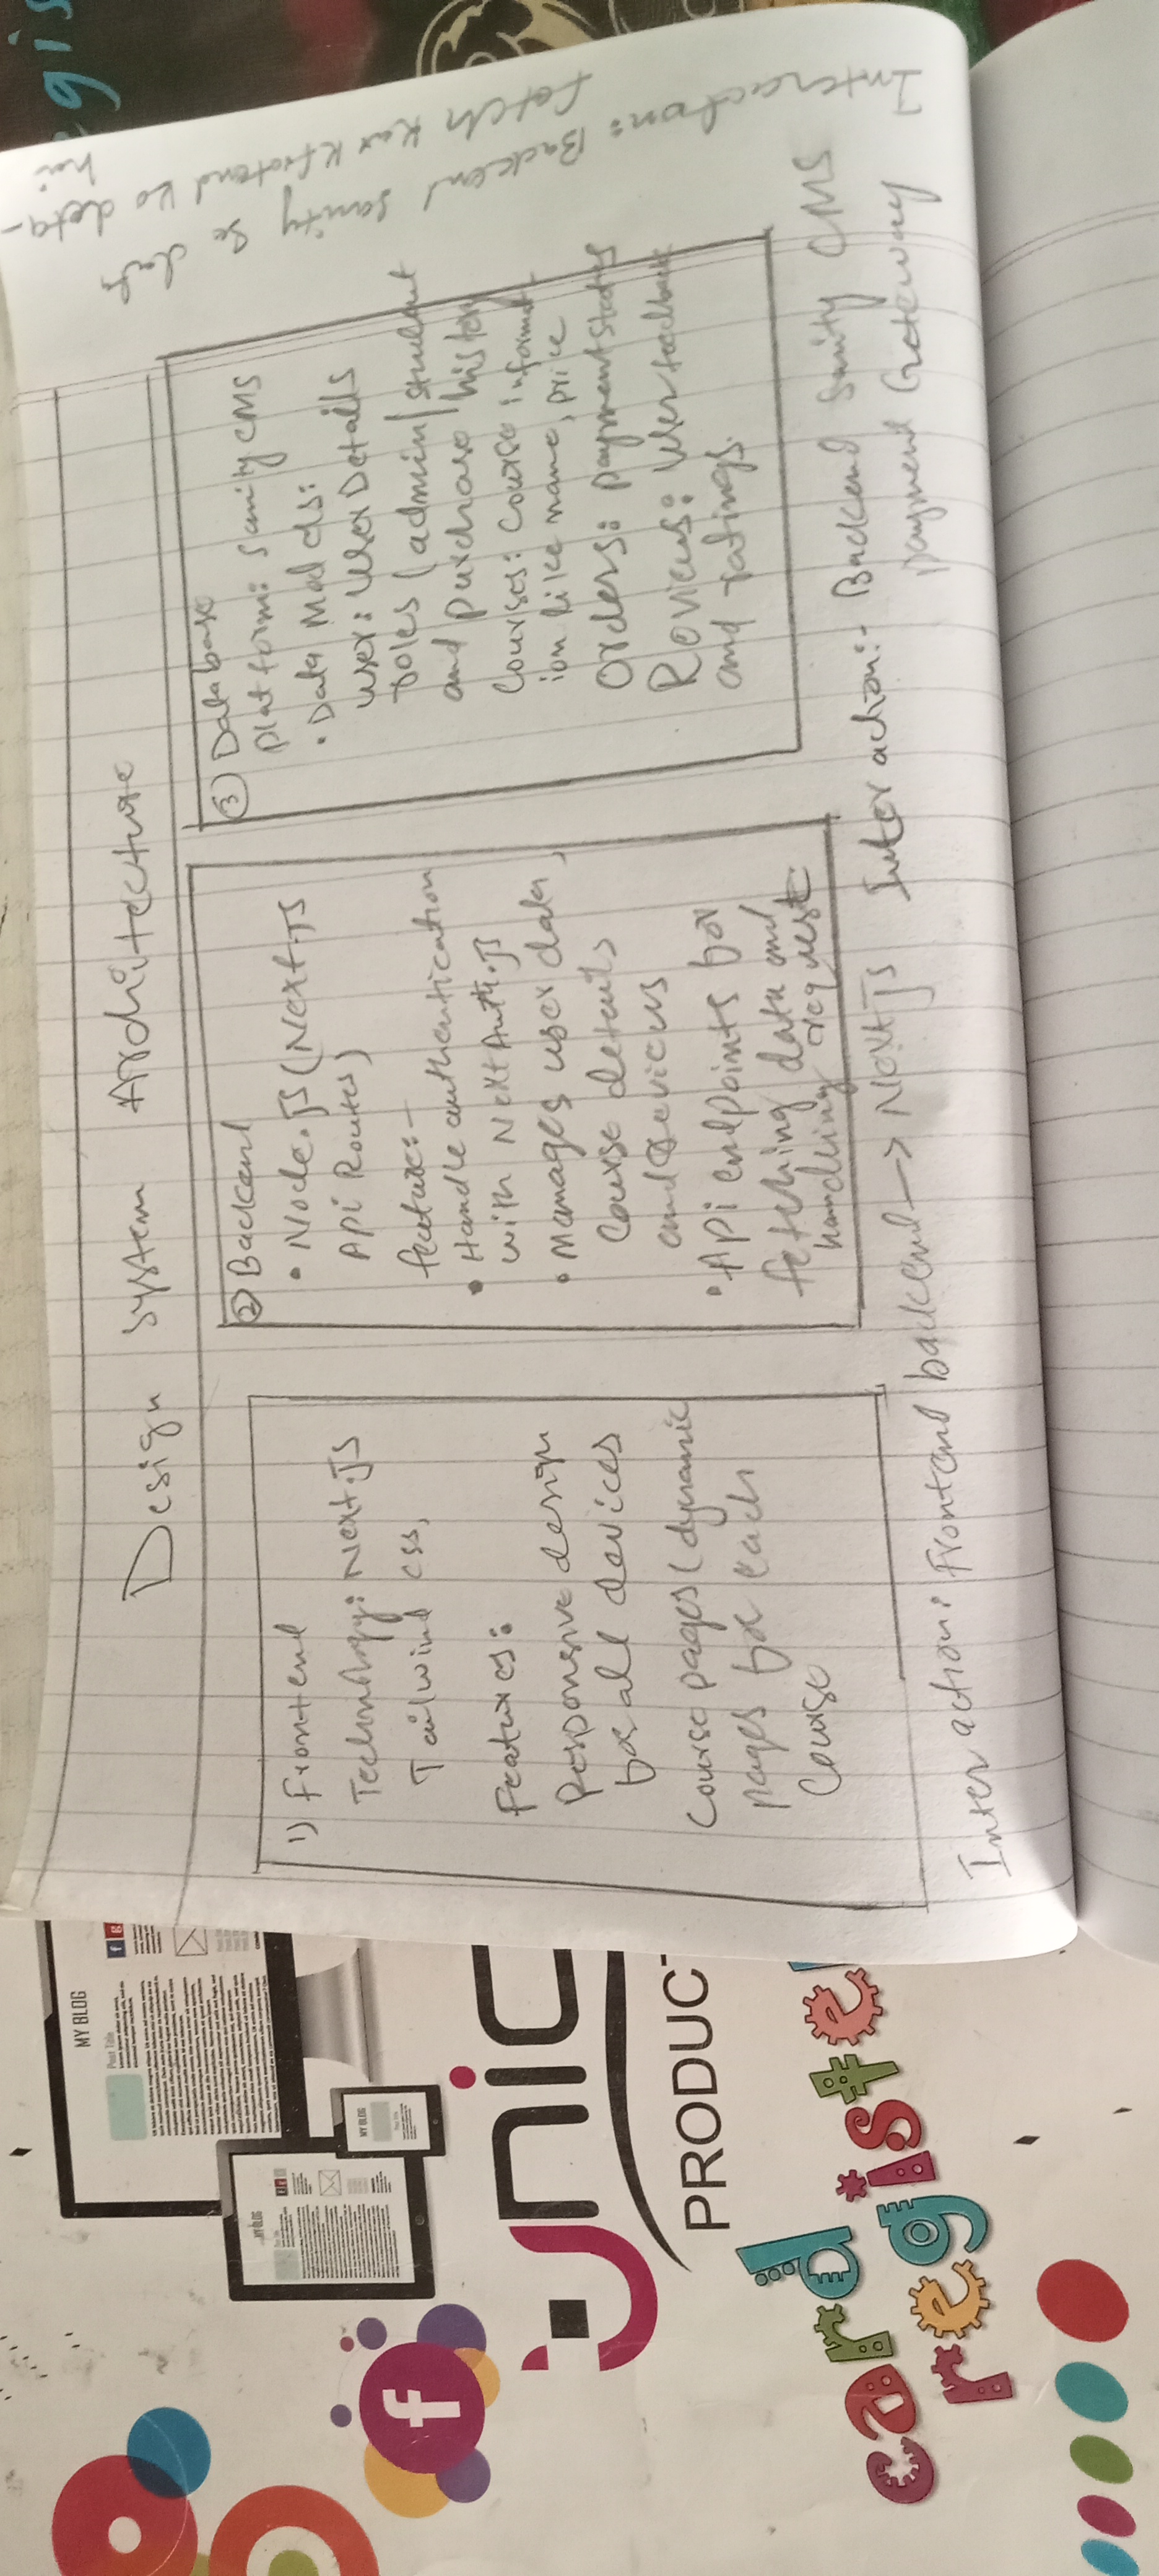 Design system Architecture
1) Frontend
Technology: Next.JS
Tailwind css,
Features:
Responsive design
for all devices
Course pages (dynamic
pages for each
Course
Inter action: Frontend backend → Next JS
② Backend
• Node.JS (Next.JS
API Routes)
feature:-
• Handle authentication
with NextAuth.JS
• Manages user data,
course details
and reviews
• API endpoints for
fetching data and
handling request.
③ Database
Platform: Sanity CMS
• Data Models:
user: User Details
roles (admin/student
and purchase history
Courses: Course informat
ion like name, price
Orders: payment status
Reviews: User feedback
and ratings.
Inter action:- Backend Sanity CMS
payment Gateway
Interaction: Backend sanity se data
fetch kar k frontend ko deta
hai
MY BLOG
Post Title
MY BLOG
MY BLOG
f
ynic
PRODUCT
card
register
egis